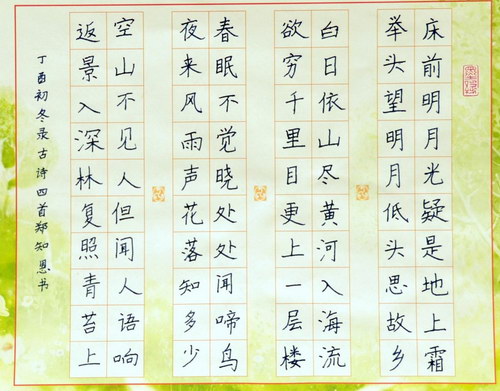 床前明月光疑是地上霜
举头望明月低头思故乡
白日依山尽黄河入海流
欲穷千里目更上一层楼
春眠不觉晓处处闻啼鸟
夜来风雨声花落知多少
空山不见人但闻人语响
返景入深林复照青苔上
丁酉初冬录古诗四首郑知恩书